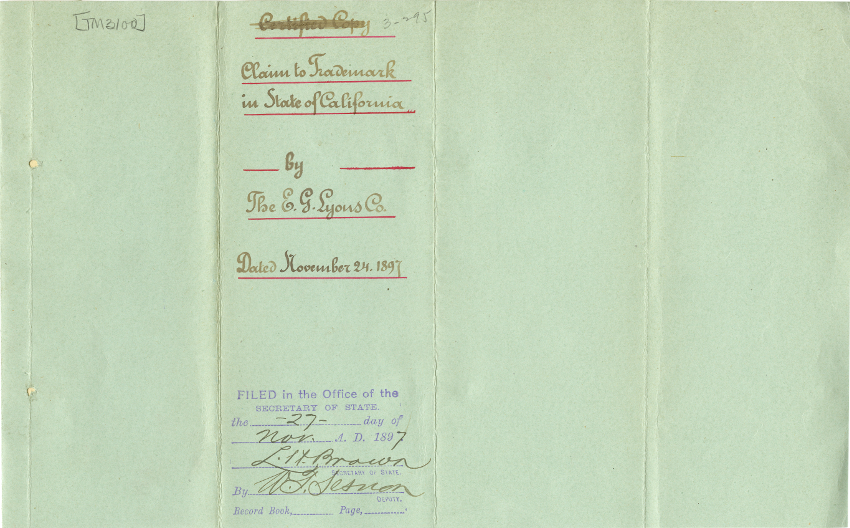 [TM3100]
Certified Copy
3-295
Claim to Trademark
in State of California
by
The E. G. Lyons Co.
Dated November 24. 1897
FILED in the Office of the
SECRETARY OF STATE.
the -27- day of
Nov. A. D. 1897
L. H. Brown
SECRETARY OF STATE.
By W. T. Sesnon
DEPUTY.
Record Book, Page,